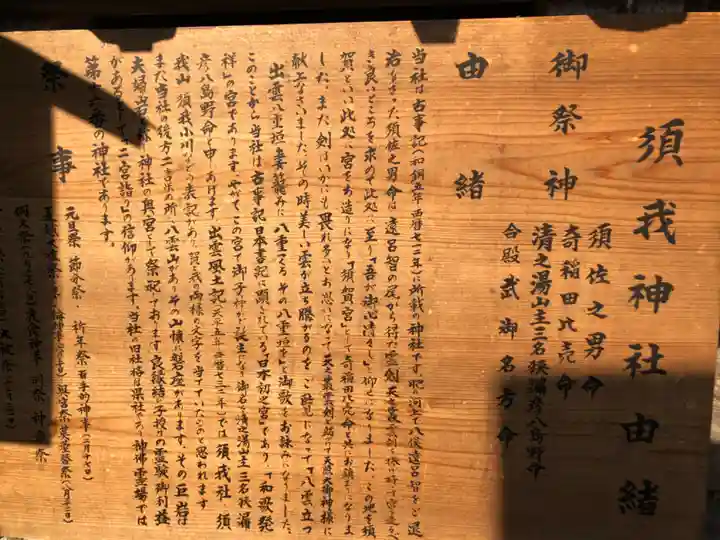 須我神社由緒
御祭神
須佐之男命
奇稲田比売命
清之湯山主三名狭漏彦八島野命
合殿 武御名方命
由緒
当社は古事記(和銅五年西暦七一二年)に所載の神社です。肥の河上で八俣遠呂智をご退
治なさった須佐之男命は遠呂智の尾から得た霊剣
き良いところを求めて此処に至り「吾が御心清々し」と仰せになりました。この地を須
賀といい此処に宮をお造りになり「須賀宮」として奇稲田比売命と共にお鎮まりになりま
した。また、剣はいかにも畏れ多くとお思いになって
献上なさいました。その時美しい雲が立ち騰がるのをご覧になって「八雲立つ
出雲八重垣妻籠みに 八重つくる その八重垣を」と御歌をお詠みになりました。
このことから当社は古事記日本書記に顕されている「日本初之宮」であり、「和歌発
祥」の宮であります。やがてこの宮で御子神が誕生になり御名を清之湯山主三名狭漏
彦八島野命と申しあげます。出雲風土記(天平五年西暦七三三年)では須我社、須
我山、須我小川などの表記があり、賀と我の両様の文字を当てていたものと思われます
また当社の後方二粁の所、八雲山があり、その山腹に磐座があります。その巨岩は
大場岩を当神社の奥宮として祭祀しております。良縁結び子授の霊験御利益
があるとして「二宮詣り」の信仰があります。当社の旧社格は県社であり、神佛霊場では
第十六番の神社であります。
祭事
元旦祭 節分祭 祈年祭 百手的神事(二月十七日)
例大祭